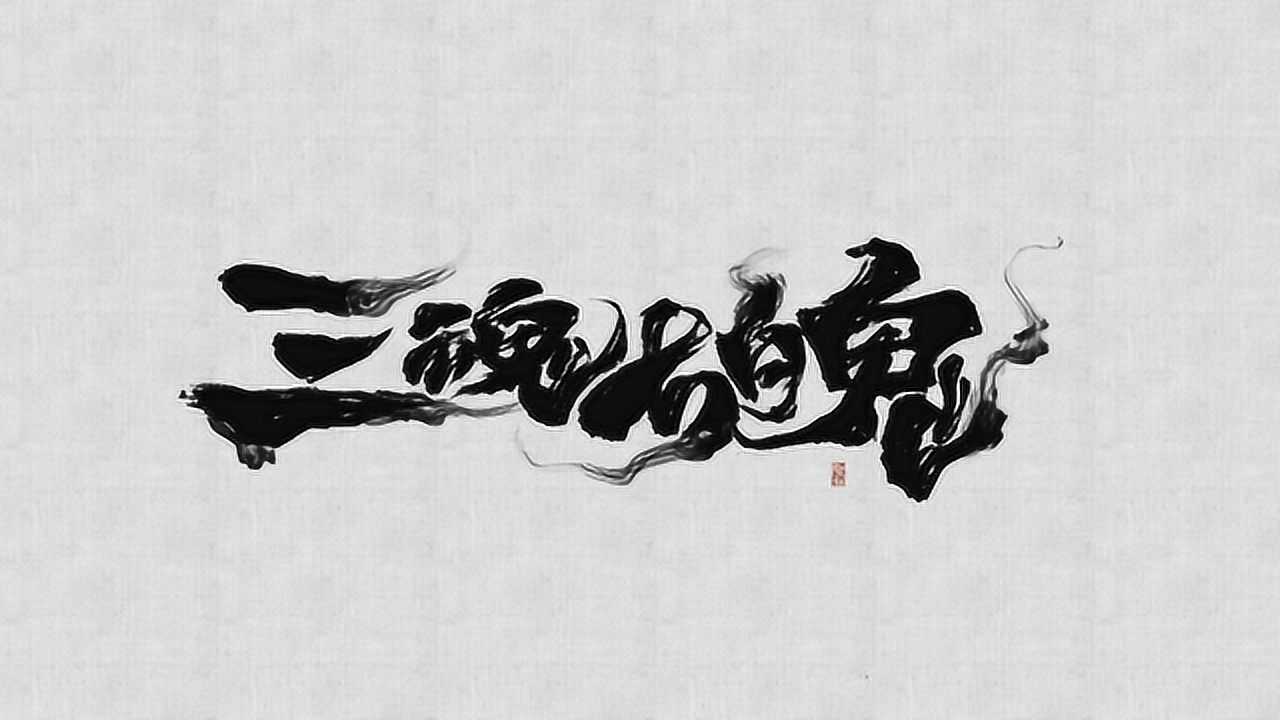 三魂七魄